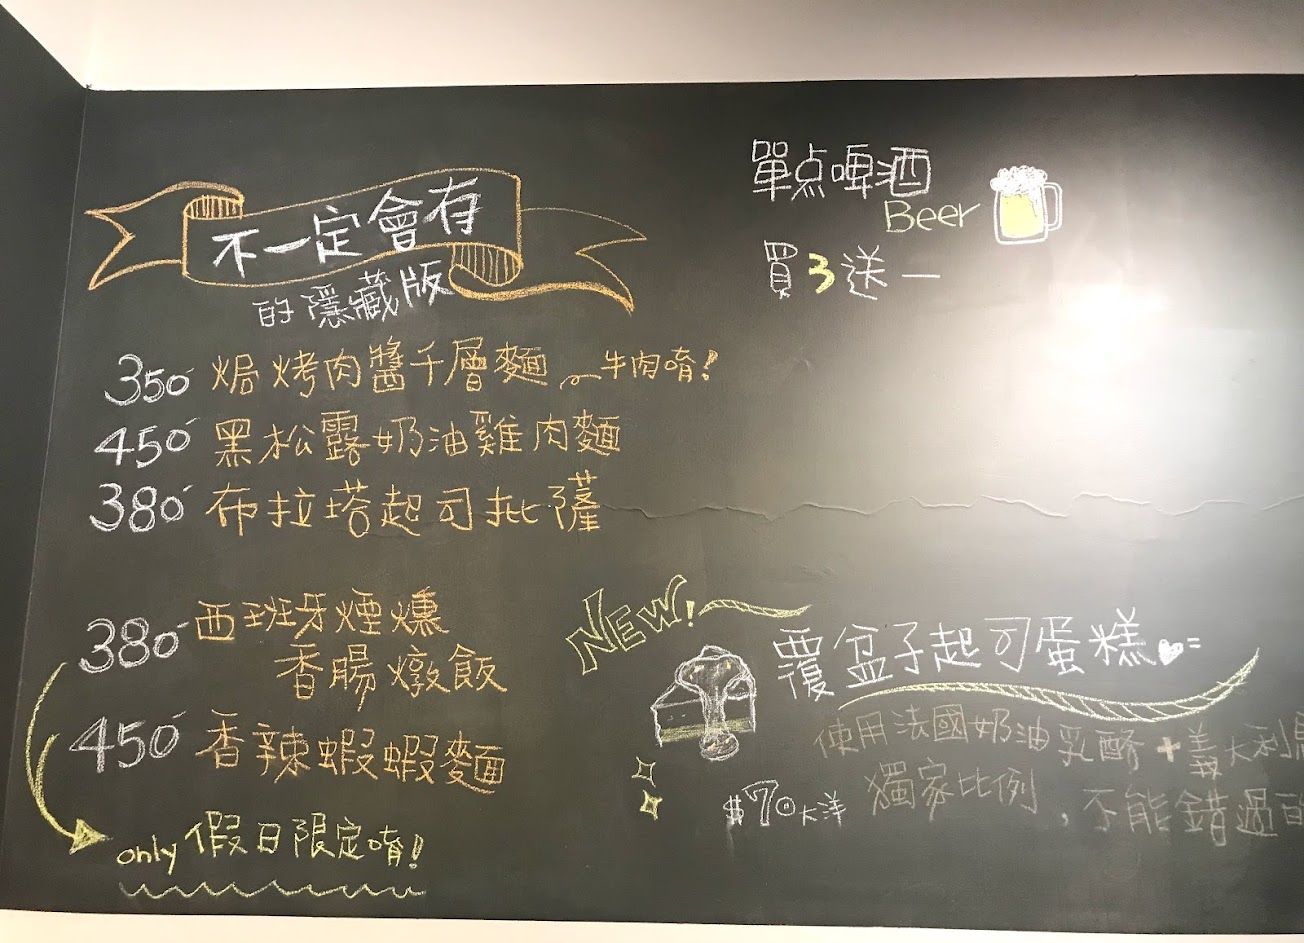 不一定會有
的隱藏版
350 焗烤肉醬千層麵 牛肉唷!
450 黑松露奶油雞肉麵
380 布拉塔起司披薩
380 西班牙煙燻
香腸燉飯
450 香辣蝦蝦麵
only 假日限定唷!
單点啤酒
Beer
買3送一
NEW!
覆盆子起司蛋糕
使用法國奶油乳酪+義大利
獨家比例,不能錯過的
$70大洋